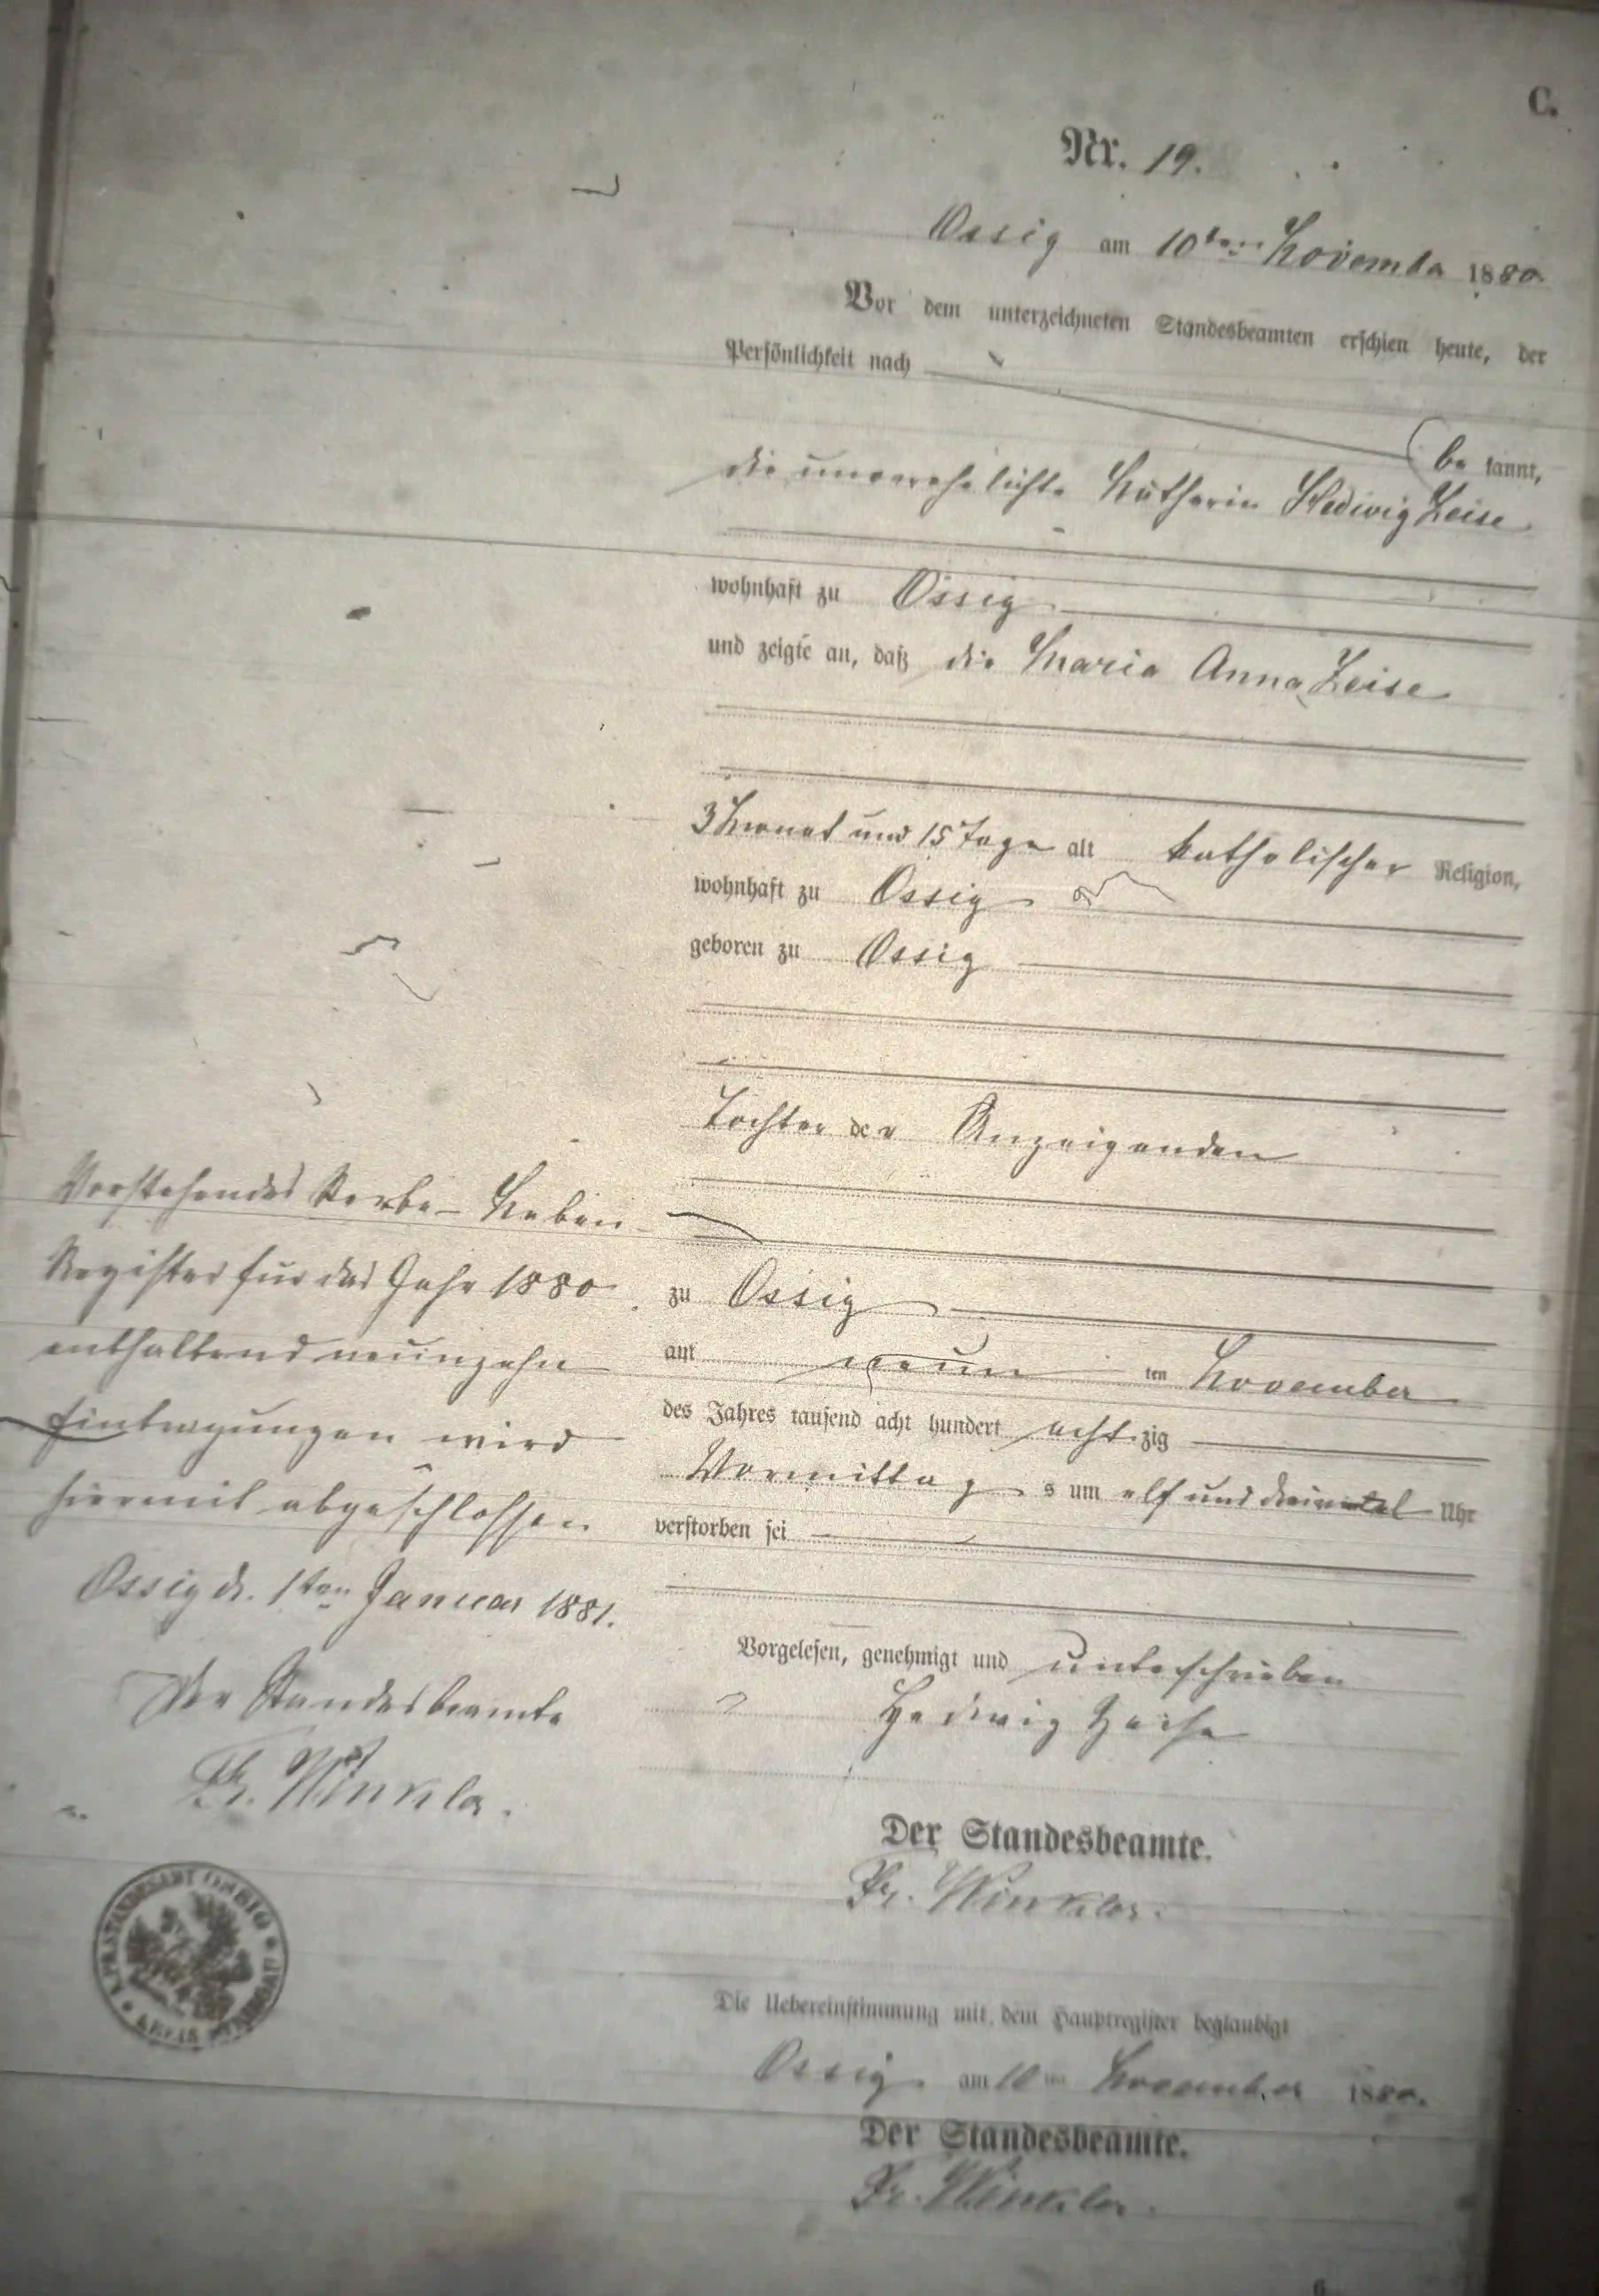 C.
Nr. 19.
Ossig am 10ten November 1880.
Vor dem unterzeichneten Standesbeamten erschien heute, der
Persönlichkeit nach
be kannt,
die unverehelichte Katharin Hedwig Zeise
wohnhaft zu Ossig
und zeigte an, daß die Maria Anna Zeise
3 Monat und 15 Tage alt katholischer Religion,
wohnhaft zu Ossig
geboren zu Ossig
Tochter der Anzeigenden
zu Ossig
am neun ten November
des Jahres tausend acht hundert acht zig
Vormittag s um elf und dreivirtel Uhr
verstorben sei
Vorgelesen, genehmigt und unterschrieben
Hedwig Zeise
Der Standesbeamte.
Fr. Winkler.
Die Uebereinstimmung mit dem Hauptregister beglaubigt
Ossig am 10ten November 1880.
Der Standesbeamte.
Fr. Winkler.
Vorstehendes Sterbe-Neben-
Register für das Jahr 1880
enthaltend neunzehn
Eintragungen wird
hiermit abgeschlossen
Ossig d. 1ten Januar 1881.
Der Standesbeamte
Fr. Winkler.
K. PR. STANDESAMT OSSIG
KREIS
6